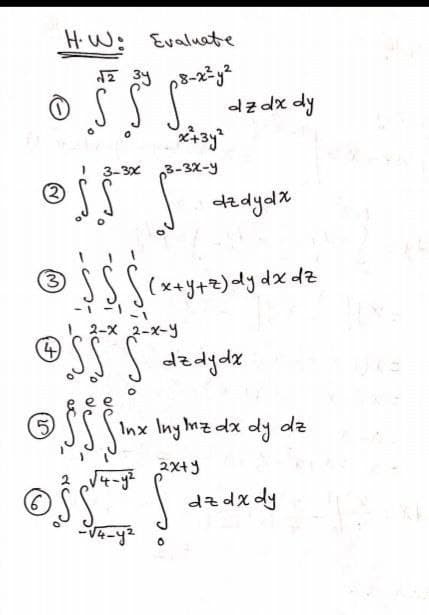 H.W: Evaluate
① ∫₀^√2 ∫₀^3y ∫_{x²+3y²}^{8-x²-y²} dz dx dy
② ∫₀^1 ∫₀^{3-3x} ∫₀^{3-3x-y} dz dy dx
③ ∫₋₁^1 ∫₋₁^1 ∫₋₁^1 (x+y+z) dy dx dz
④ ∫₀^1 ∫₀^{2-x} ∫₀^{2-x-y} dz dy dx
⑤ ∫₁^e ∫₁^e ∫₁^e lnx lny lnz dx dy dz
⑥ ∫₀^2 ∫_{-√4-y²}^{√4-y²} ∫₀^{2x+y} dz dx dy